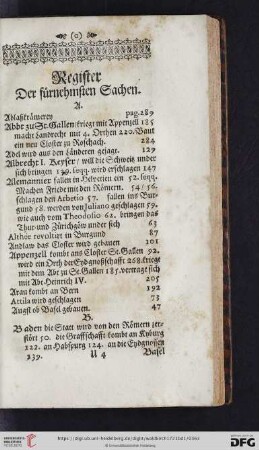 (o)
Register
Der fürnehmsten Sachen.
A.
Ablaßkrämerey pag. 289
Abbt zu St. Gallen kriegt mit Appenzell 185
macht Landrecht mit 4. Orthen 220. Baut
ein new Closter zu Roschach. 284
Adel wird aus den Länderen gejagt. 129
Albrecht I. Keyser / will die Schweitz under
sich bringen 139. seqq. wird erschlagen 147
Allemannier fallen in Helvetien ein 52. seqq.
Machen Friede mit den Römern. 54/56.
schlagen den Arbetio 57. fallen ins Bur-
gund 58. werden von Juliano geschlagen 59.
wie auch vom Theodosio 62. bringen das
Thur- und Zürichgöw under sich 63
Althäe revoltirt in Burgund 87
Andlaw das Closter wird gebauen 101
Appenzell kombt ans Closter St. Gallen 92.
wird ein Orth der Eydgnoßschafft 268. kriegt
mit dem Abt zu St. Gallen 185. vertragt sich
mit Abt Heinrich IV. 205
Arau kombt an Bern 192
Attila wird geschlagen 73
Augst ob Basel gebauen. 47
B.
Baden die Statt wird von den Römern zer-
stört 50. die Graffschafft kombt an Kyburg
122. an Habspurg 124. an die Eydgnossen
239. U 4 Basel
http://digi.ub.uni-heidelberg.de/diglit/
© Universitätsbibliothek Heidelberg
gefördert durch die
DFG